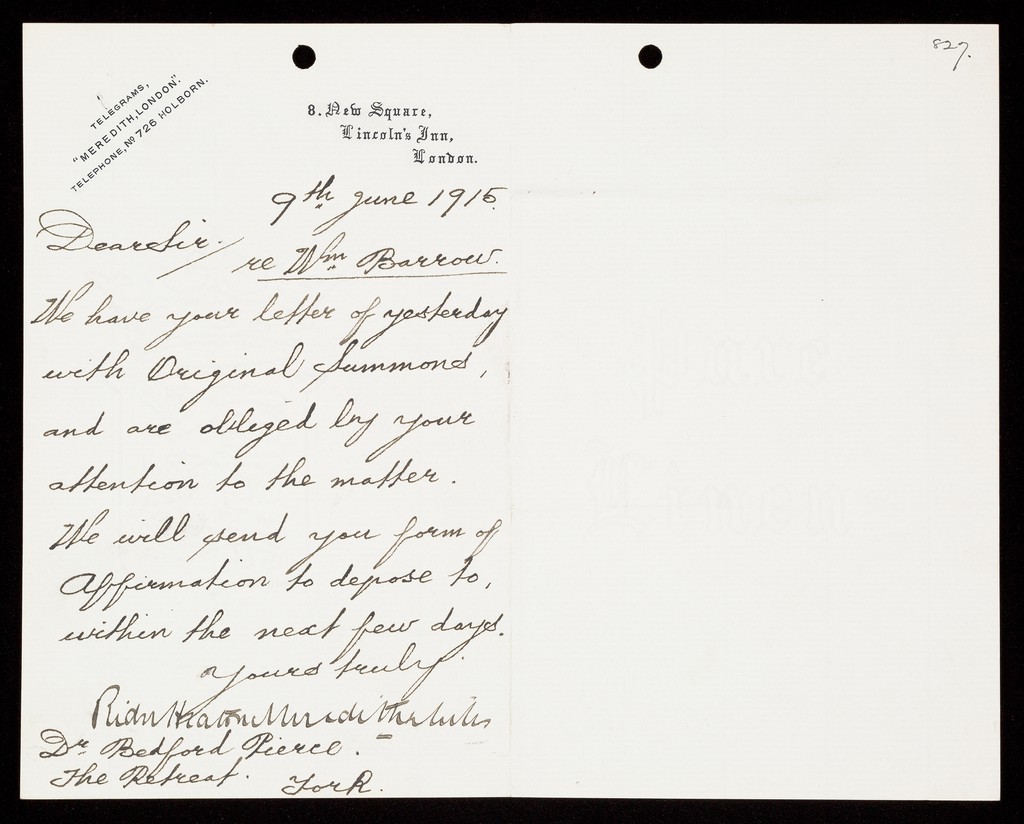 827.
TELEGRAMS,
"MEREDITH, LONDON."
TELEPHONE, Nº 726 HOLBORN.
8. New Square,
Lincoln's Inn,
London.
9th June 1915.
Dear Sir.
re Wm Barrow.
We have your letter of yesterday
with Original Summons,
and are obliged by your
attention to the matter.
We will send you form of
Affirmation to depose to,
within the next few days.
Yours truly.
Meredith
Dr Bedford Pierce.
The Retreat. York.